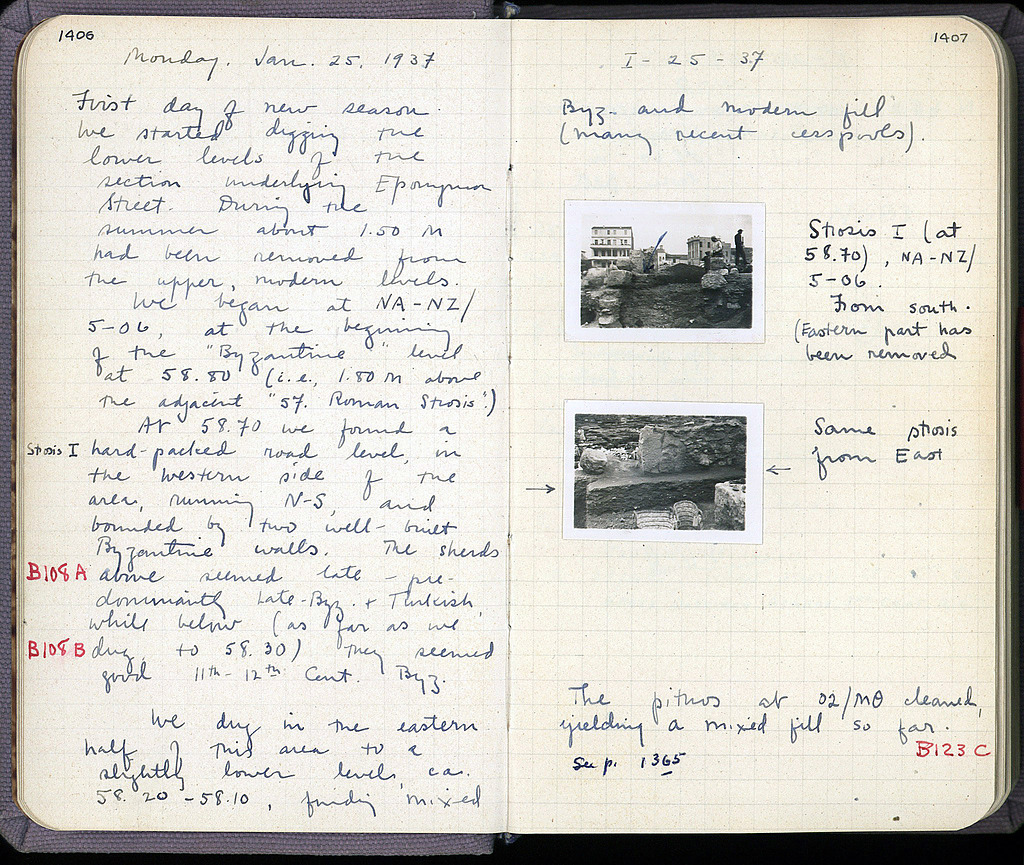 1406
Monday. Jan. 25, 1937
First day of new season.
We started digging the
lower levels of the
section underlying Eponymon
Street. During the
summer about 1.50 m
had been removed from
the upper, modern levels.
We began at NA-NZ/
5-06, at the beginning
of the "Byzantine" level
at 58.80 (i.e., 1.80 m above
the adjacent "57. Roman Strosis".)
At 58.70 we found a
Strosis I hard-packed road level, in
the western side of the
area, running N-S, and
bounded by two well-built
Byzantine walls. The sherds
B108A above seemed late - pre-
dominantly Late-Byz. + Turkish,
while below (as far as we
B108B dug, to 58.30) they seemed
good 11th-12th Cent. Byz.
We dug in the eastern
half of this area to a
slightly lower level, ca.
58.20-58.10, finding mixed
1407
I-25-37
Byz. and modern fill
(many recent cesspools).
Strosis I (at
58.70), NA-NZ/
5-06.
From south.
(Eastern part has
been removed
Same strosis
from East
The pithos at 02/MΘ cleaned,
yielding a mixed fill so far.
B123C
See p. 1365